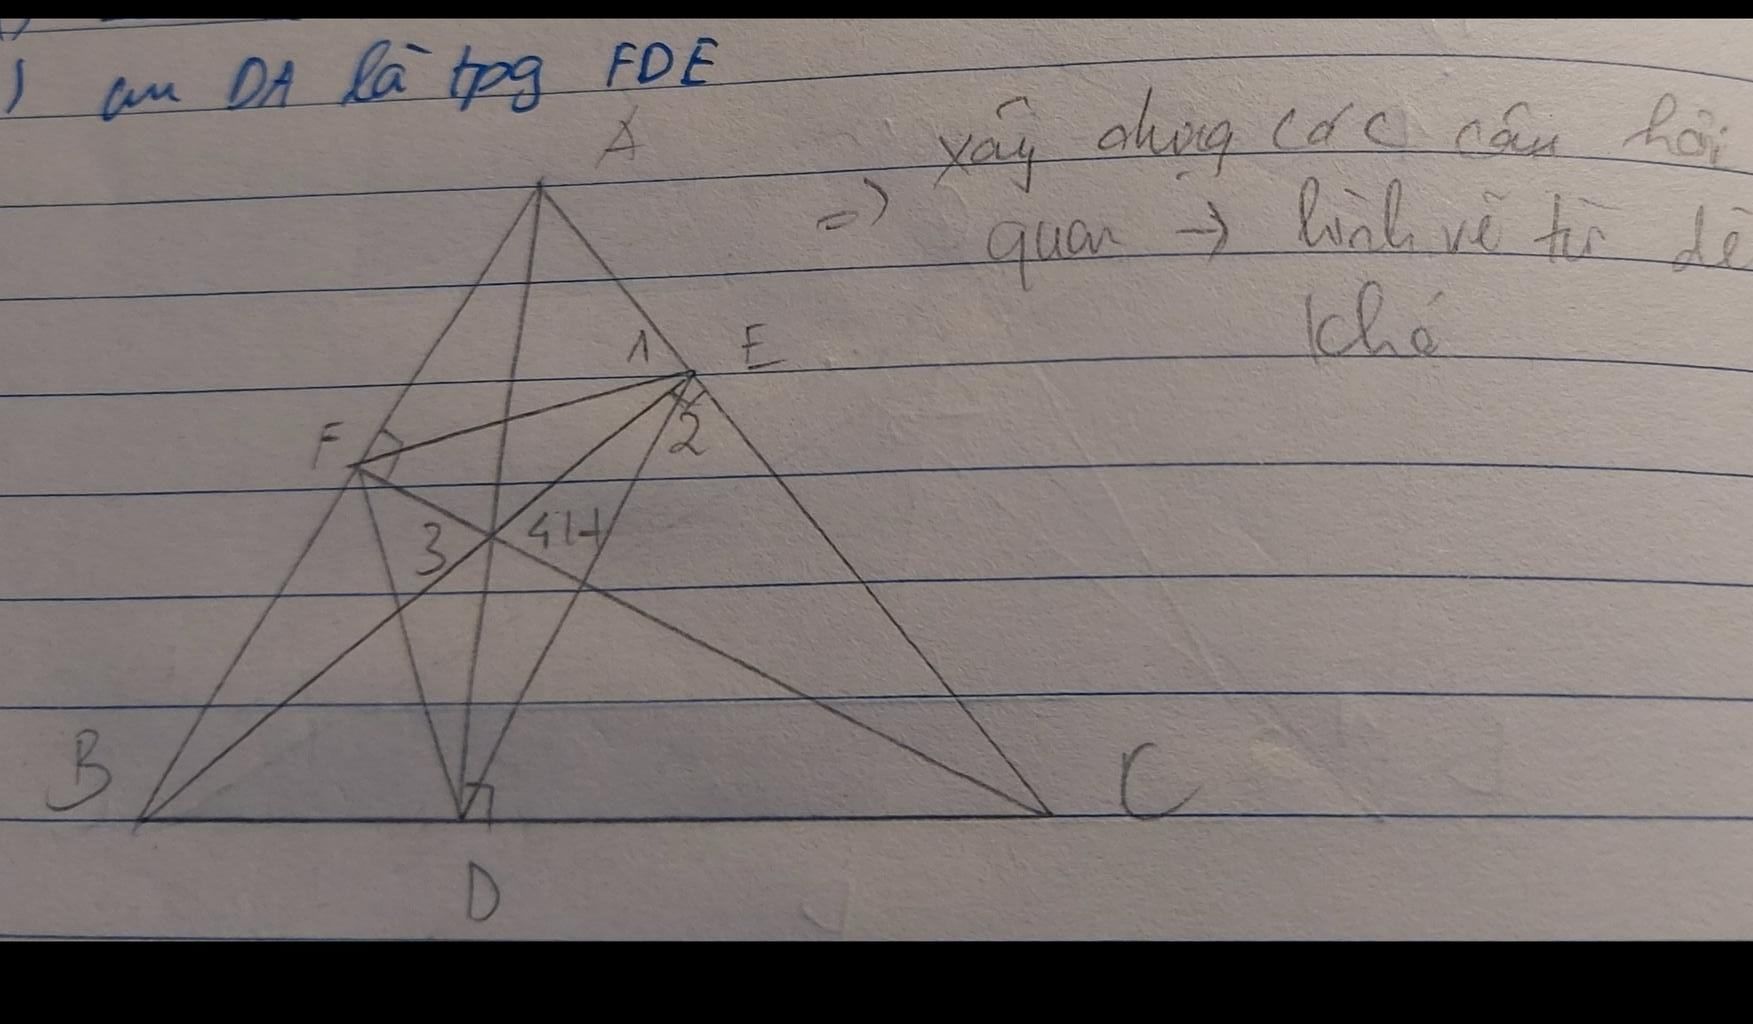 ) cm DA là tpg FDE
A
xây dựng các câu hỏi
=> quan → hình vẽ từ dễ
khó
1 E
F
2
3 4 H
B
C
D